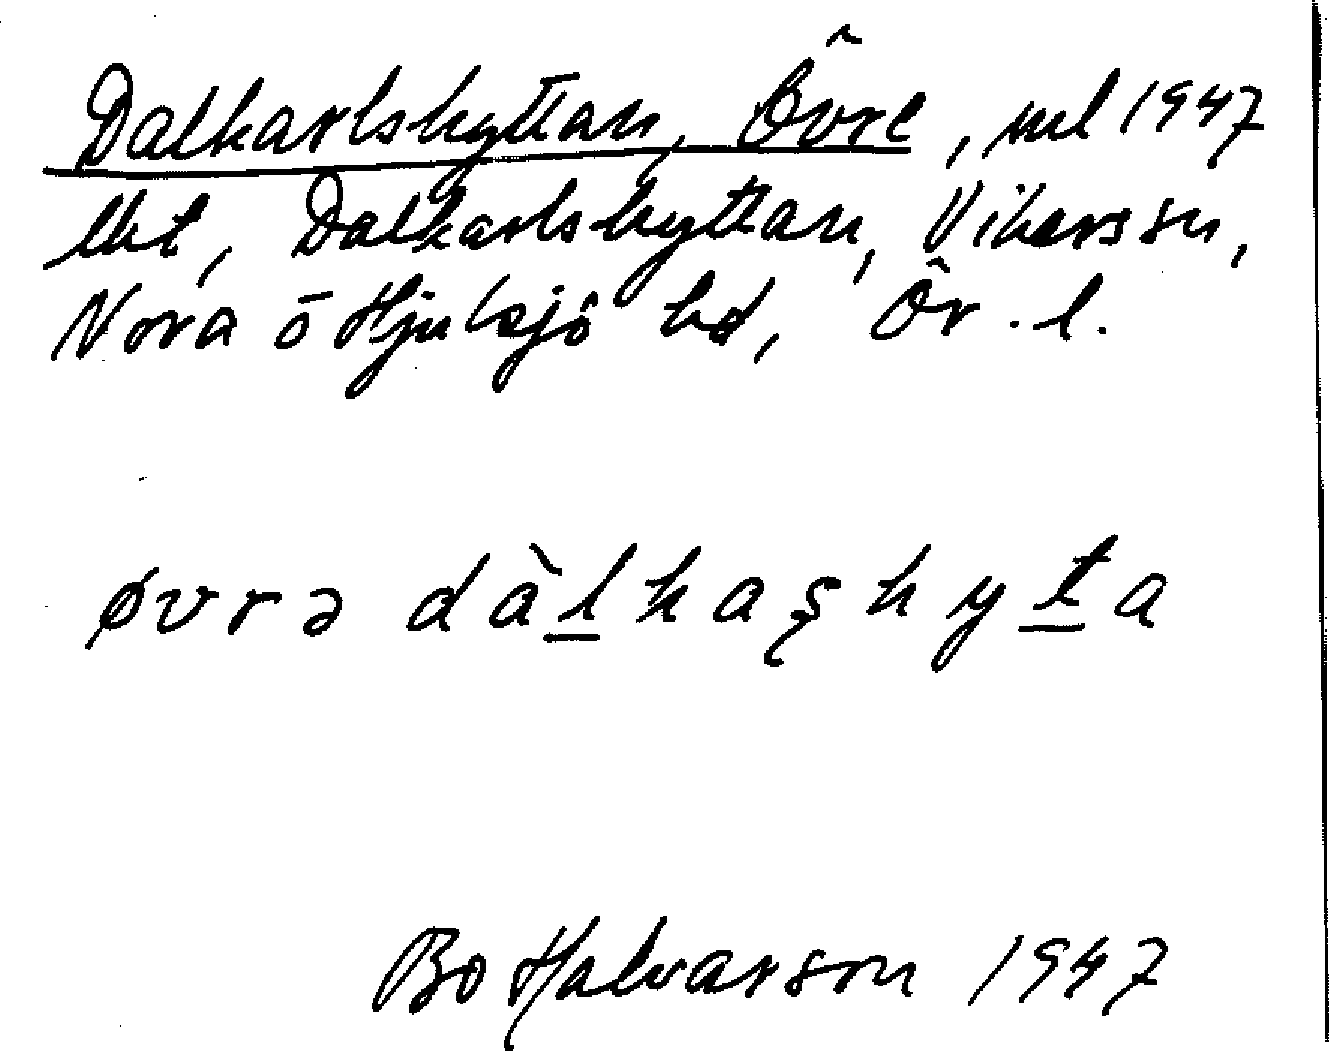 Dalkarlshyttan, Övre, ml 1947
lht, Dalkarlshyttan, Vikers sn,
Nora o Hjulsjö bd, Ör. l.
øvrə dàlkaşhyta
Bo Halvarson 1947